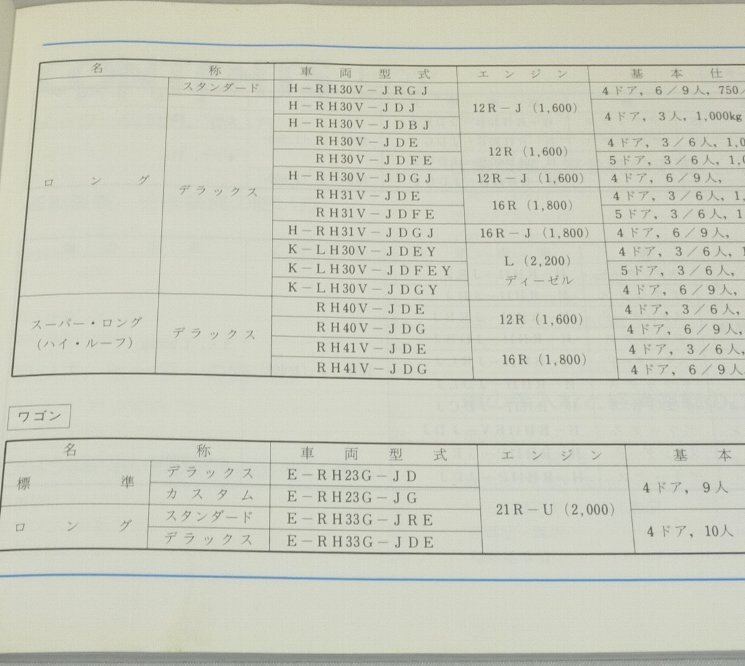 名 称 車両型式 エンジン 基本仕
ロング スタンダード H-RH30V-JRGJ 12R-J (1,600) 4ドア, 6/9人, 750/
デラックス H-RH30V-JDJ 4ドア, 3人, 1,000kg
H-RH30V-JDBJ
RH30V-JDE 12R (1,600) 4ドア, 3/6人, 1,0
RH30V-JDFE 5ドア, 3/6人, 1,0
H-RH30V-JDGJ 12R-J (1,600) 4ドア, 6/9人,
RH31V-JDE 16R (1,800) 4ドア, 3/6人, 1,
RH31V-JDFE 5ドア, 3/6人, 1
H-RH31V-JDGJ 16R-J (1,800) 4ドア, 6/9人,
K-LH30V-JDEY L (2,200) ディーゼル 4ドア, 3/6人, 1
K-LH30V-JDFEY 5ドア, 3/6人,
K-LH30V-JDGY 4ドア, 6/9人,
スーパー・ロング (ハイ・ルーフ) デラックス RH40V-JDE 12R (1,600) 4ドア, 3/6人,
RH40V-JDG 4ドア, 6/9人,
RH41V-JDE 16R (1,800) 4ドア, 3/6人,
RH41V-JDG 4ドア, 6/9人
ワゴン
名 称 車両型式 エンジン 基本
標準 デラックス E-RH23G-JD 21R-U (2,000) 4ドア, 9人
カスタム E-RH23G-JG
ロング スタンダード E-RH33G-JRE 4ドア, 10人
デラックス E-RH33G-JDE